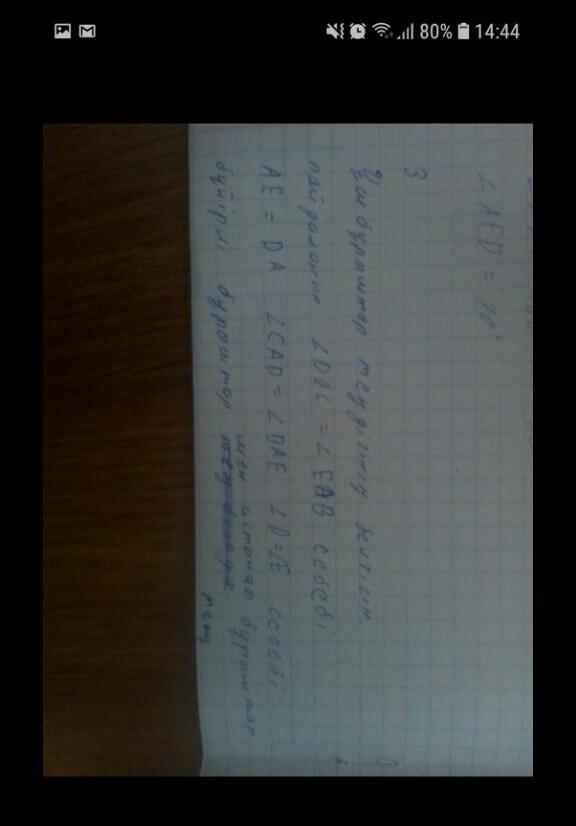 80% 14:44
∠AED = 90°
3
Үшбұрыштар теңдігінің белгісін
пайдаланып = ∠EAB себебі
AE = DA ∠CAD = ∠BAE ∠D=∠E себебі
бүйірлі бұрыштар мен астыңғы бұрыштар
тең